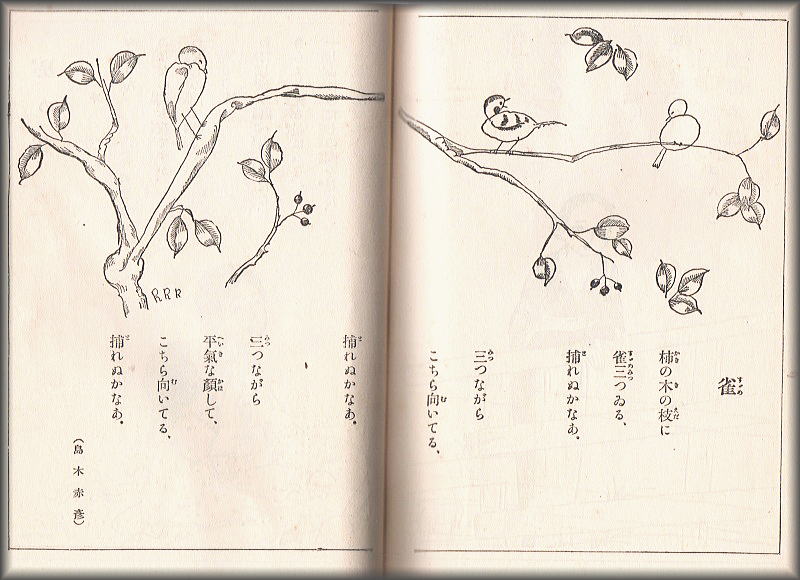 雀
柿の木の枝に
雀三つゐる、
捕れぬかなあ。
三つながら
こちら向いてる、
捕れぬかなあ。
三つながら
平氣な顏して、
こちら向いてる、
捕れぬかなあ。
(島木赤彥)
RRR